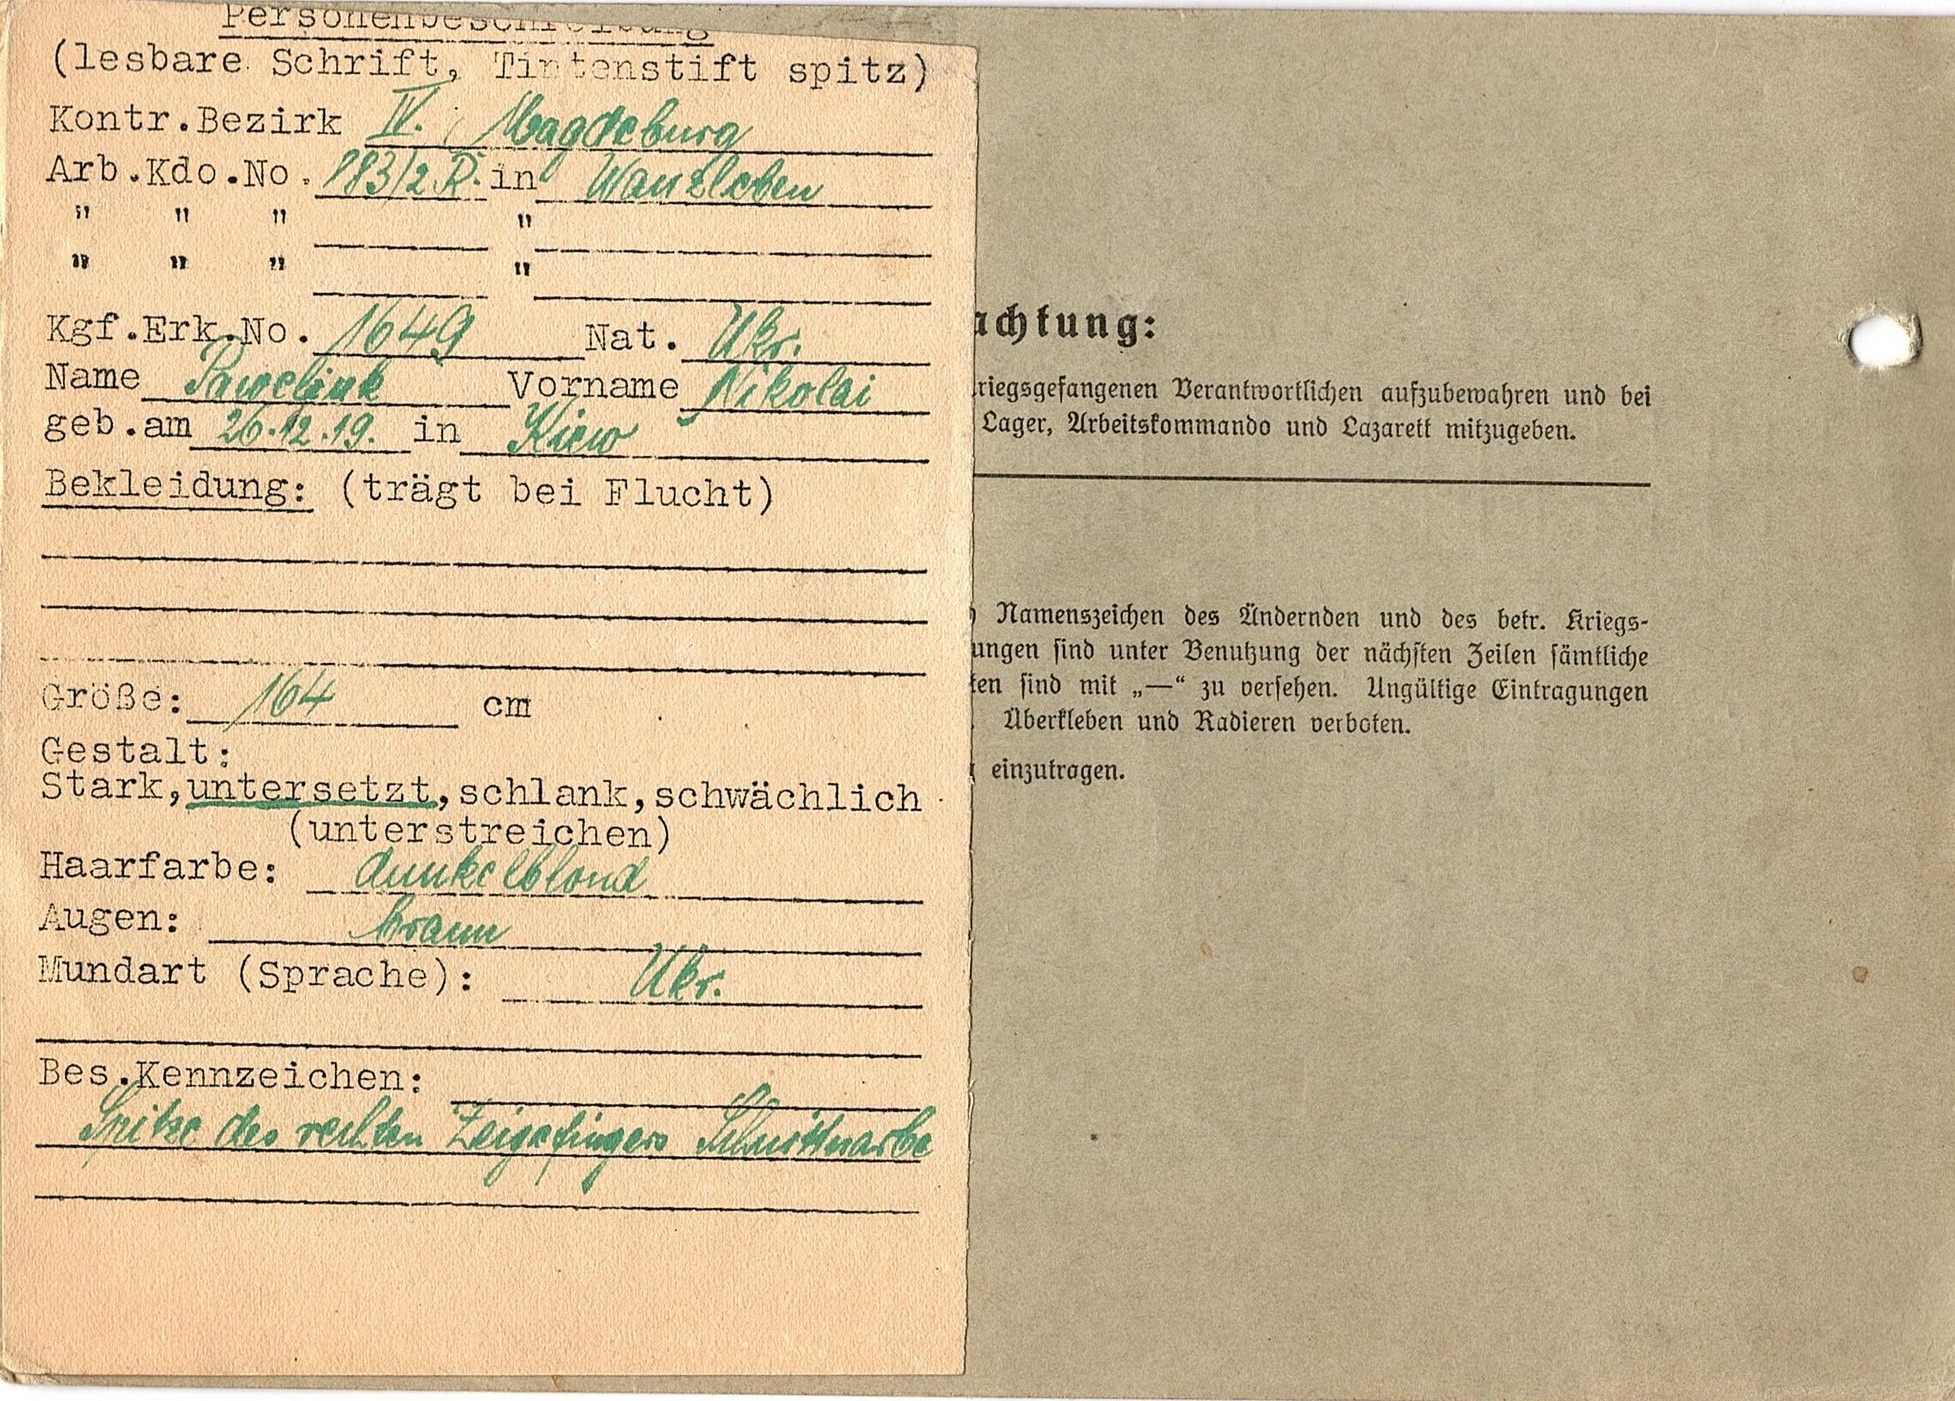 Personenbeschreibung
(lesbare Schrift, Tintenstift spitz)
Kontr.Bezirk IV. Magdeburg
Arb.Kdo.No. 183/2 R. in Wanzleben
" " " "
" " " "
Kgf.Erk.No. 1649 Nat. Ukr.
Name Paweljuk Vorname Nikolai
geb.am 26.12.19. in Kiew
Bekleidung: (trägt bei Flucht)
Größe: 164 cm
Gestalt:
Stark,untersetzt,schlank,schwächlich
(unterstreichen)
Haarfarbe: dunkelblond
Augen: braun
Mundart (Sprache): Ukr.
Bes.Kennzeichen:
Spitze des rechten Zeigefingers Schnittnarbe
achtung:
riegsgefangenen Verantwortlichen aufzubewahren und bei
Lager, Arbeitskommando und Lazarett mitzugeben.
Namenszeichen des Ändernden und des betr. Kriegs-
ungen sind unter Benutzung der nächsten Zeilen sämtliche
ten sind mit „—“ zu versehen. Ungültige Eintragungen
Überkleben und Radieren verboten.
einzutragen.